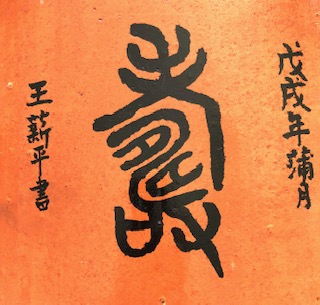 戊戌年蒲月
壽
王薪平書